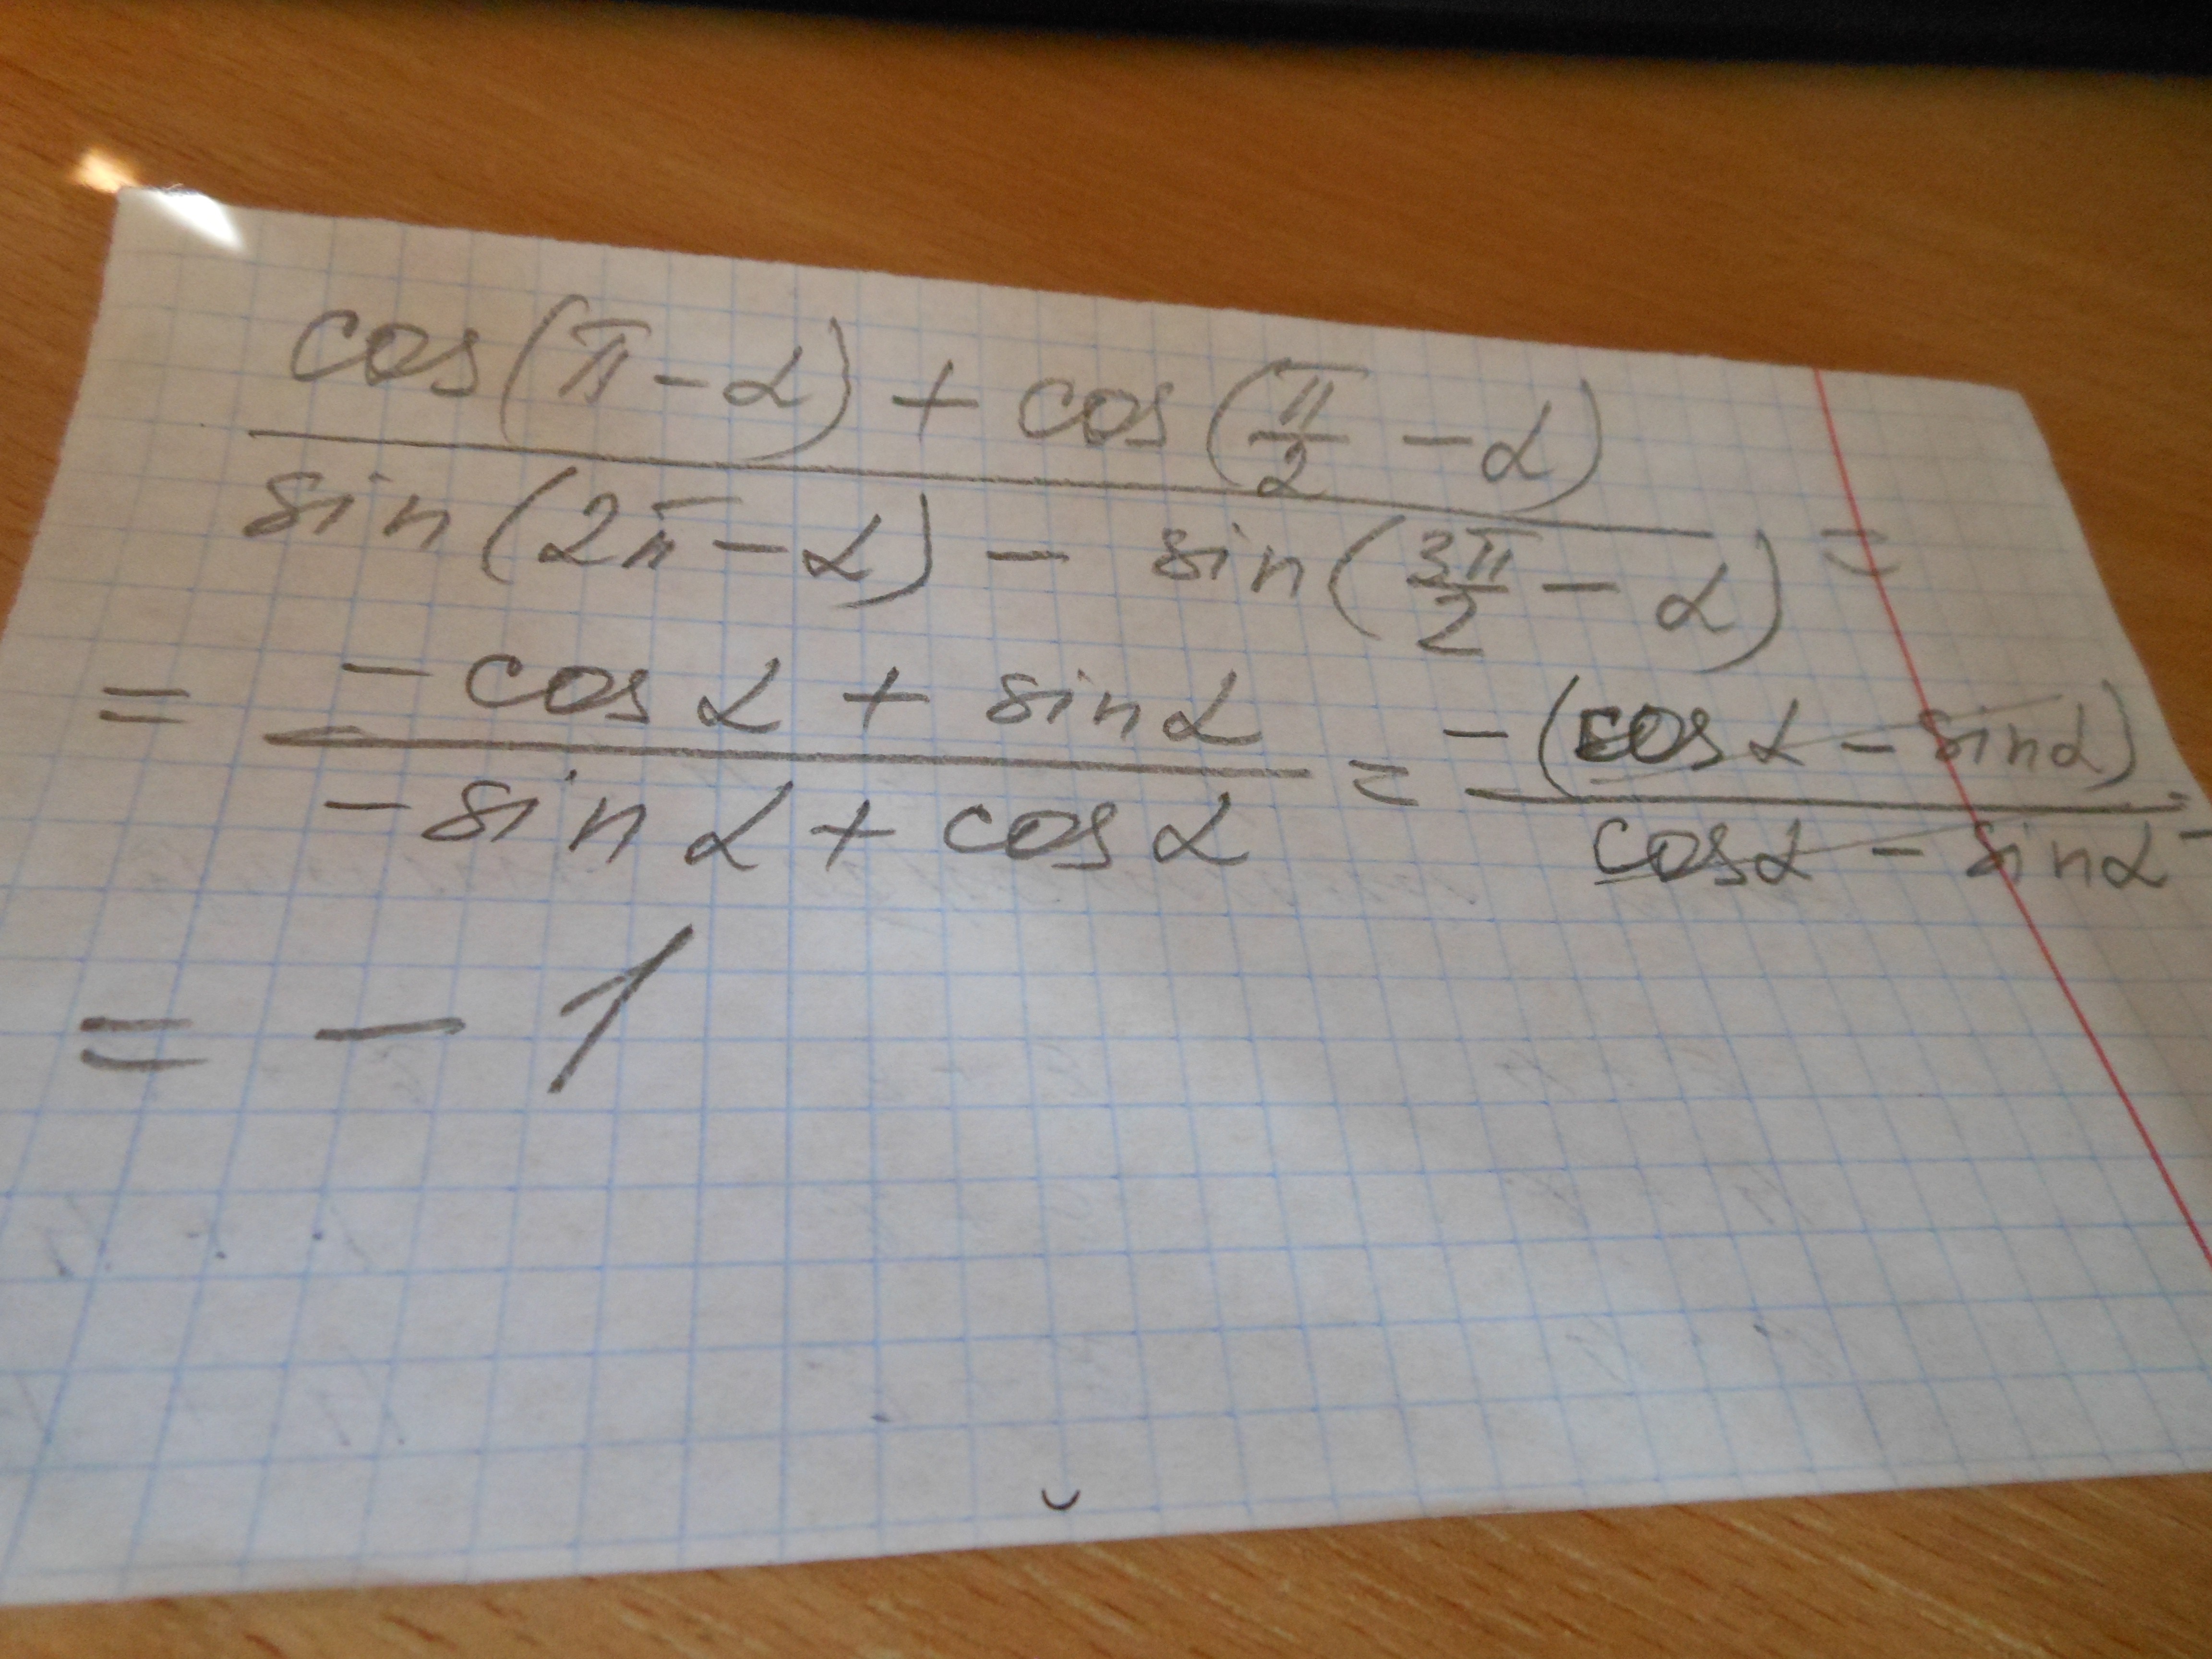 cos(π-α) + cos(π/2 - α)
sin(2π-α) - sin(3π/2 - α) =
= -cos α + sin α = -(cos α - sin α) =
-sin α + cos α cos α - sin α
= - 1